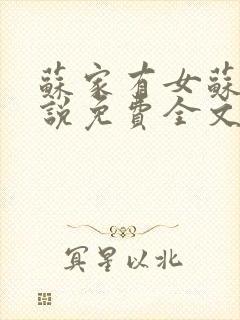 蘇家有女蘇
說免費全文
冥星以北